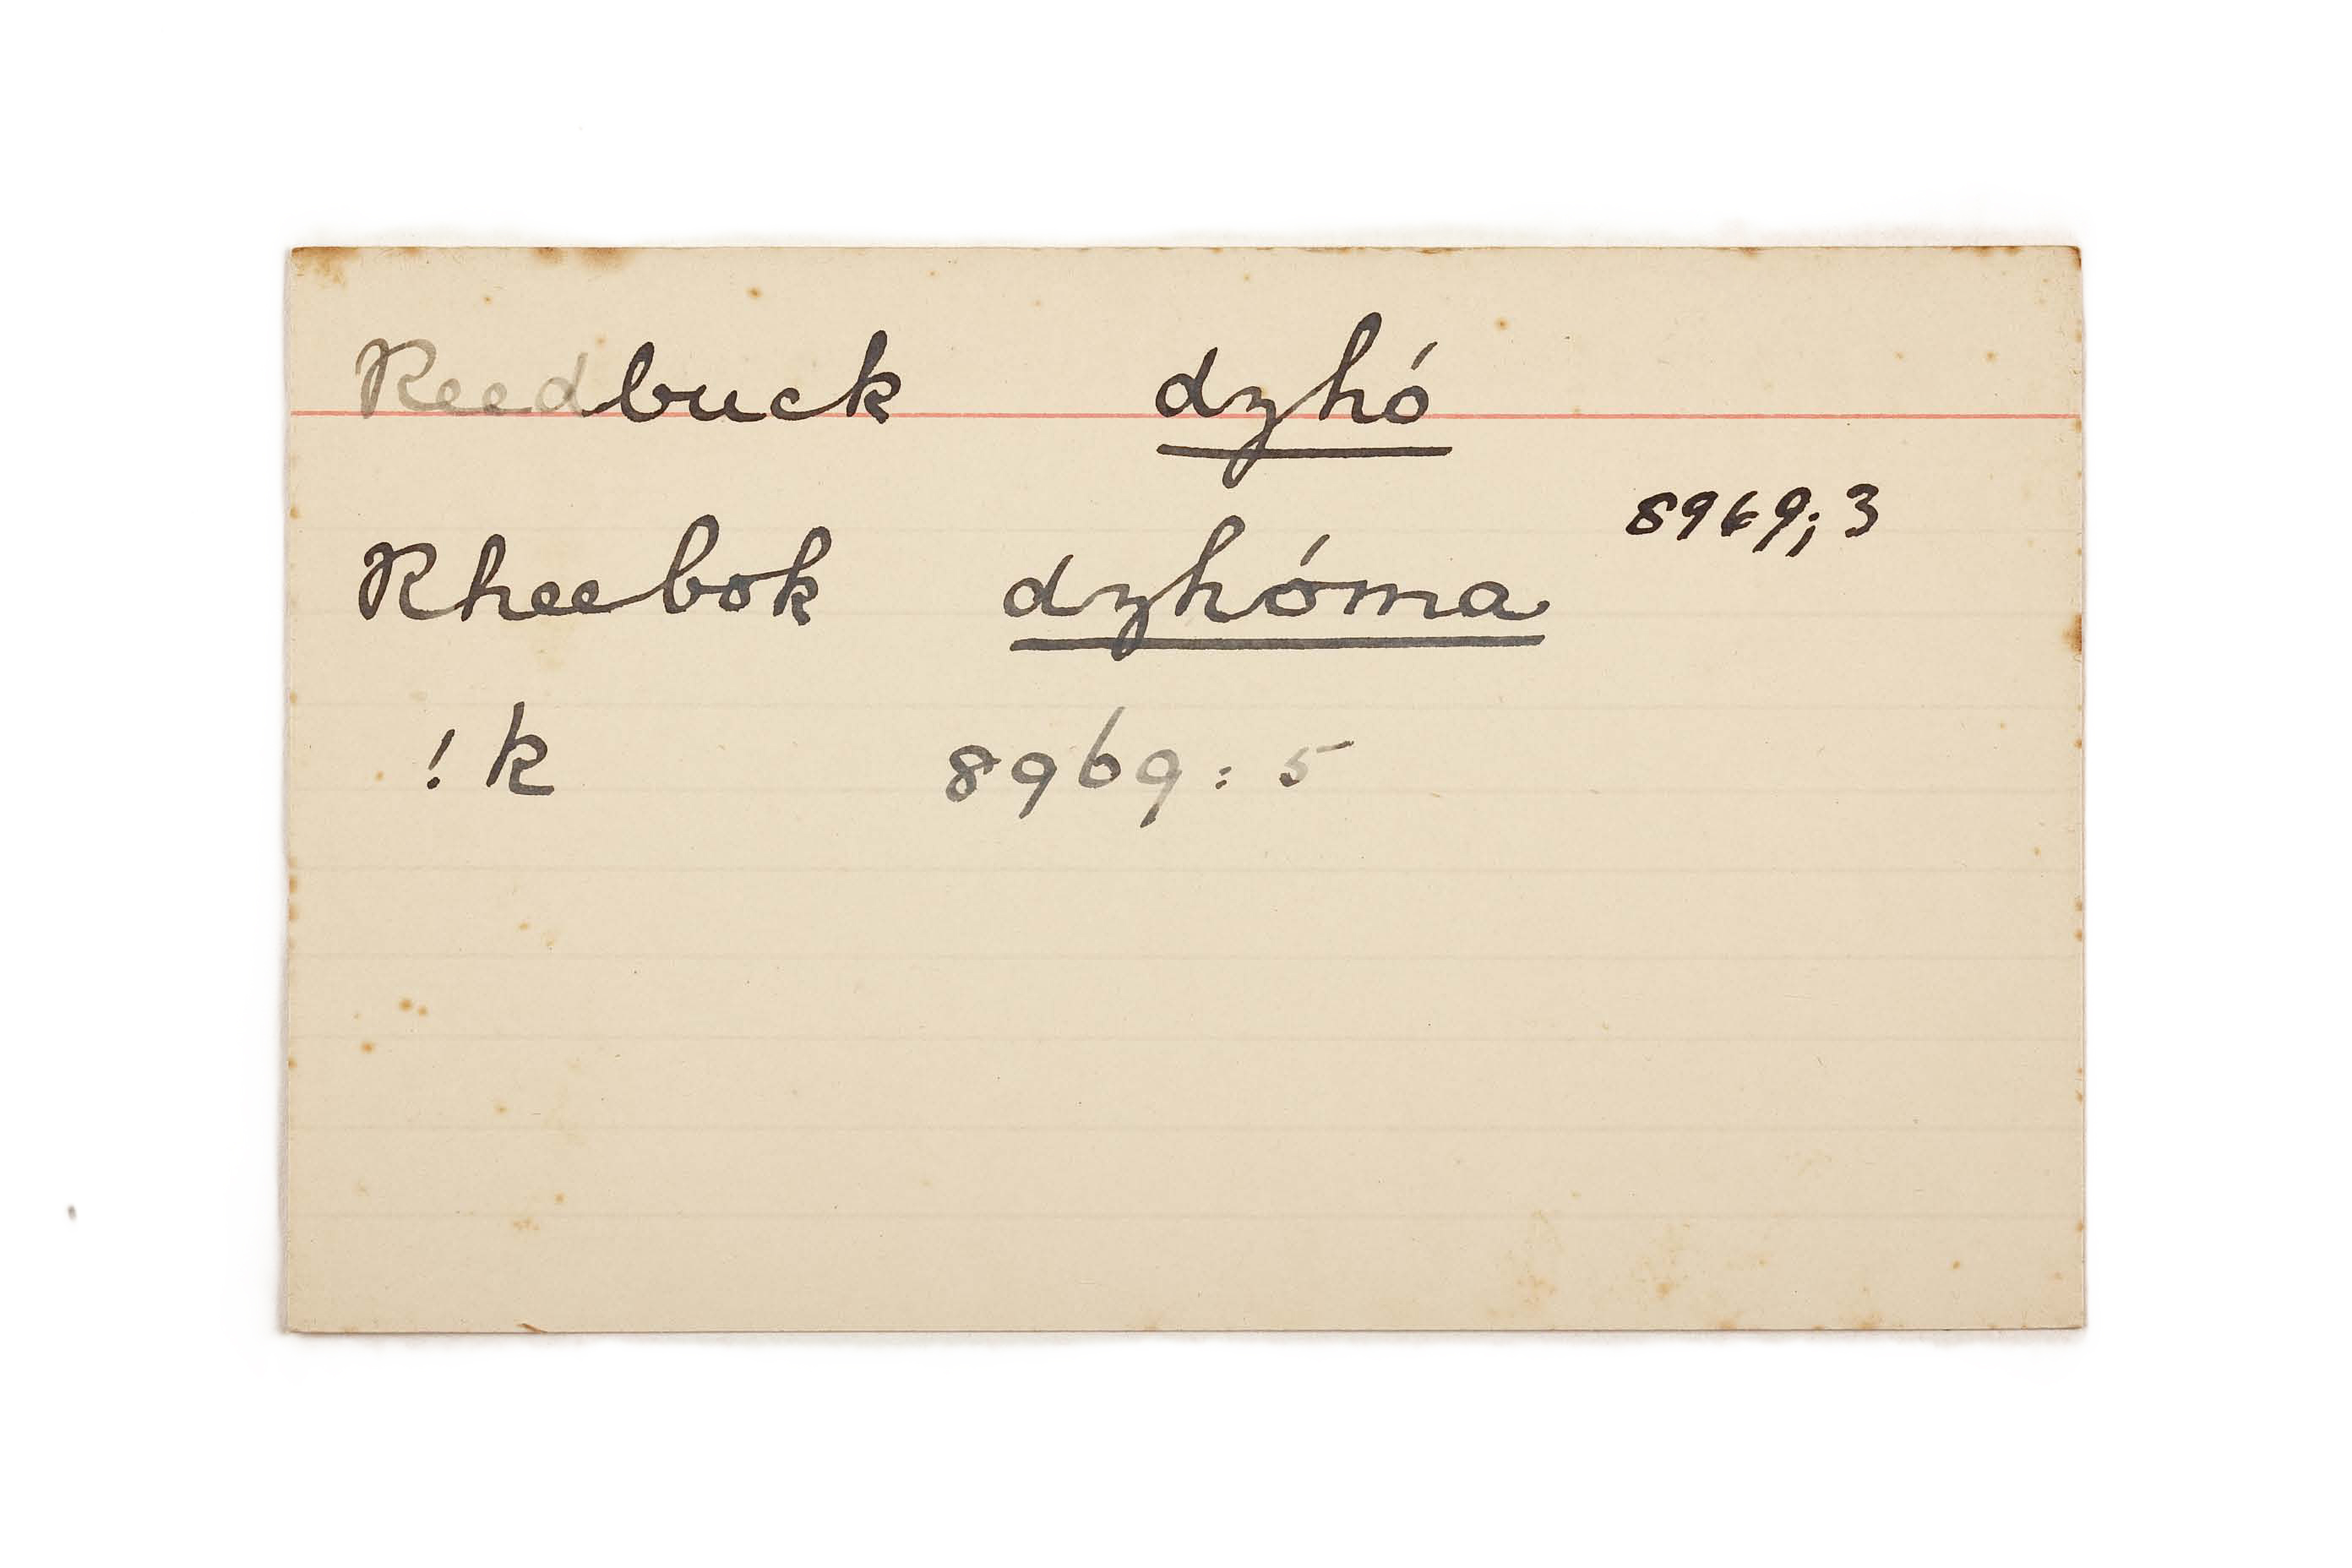 Reedbuck dzhó
8969; 3
Rheebok dzhóma
! k 8969 : 5